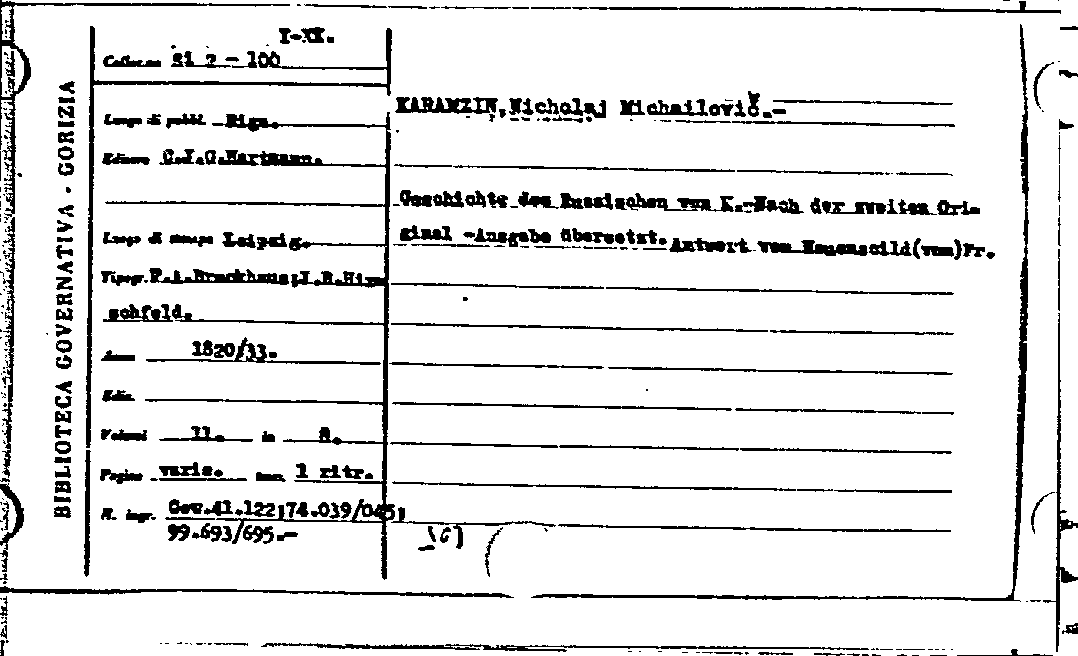 BIBLIOTECA GOVERNATIVA - GORIZIA
I-XX.
Collocaz. Si 2 - 100
KARAMZIN, Nicholaj Michailovič.-
Luogo di pubbl. Riga.
Editore C.I.G.Hartmann.
Geschichte des Russischen von K.-Nach der zweiten Ori-
ginal -Ausgabe übersetzt. Antwort von Hauenscild(vom)Fr.
Luogo di stampa Leipzig.
Tipogr. F.A.Brockhaus;I.B.Hirs
schfeld.
Anno 1820/33.
Ediz.
Volumi 11. in 8.
Pagine varie. 1 ritr.
N. ingr. Gov.41.122;74.039/045;
99.693/695.-